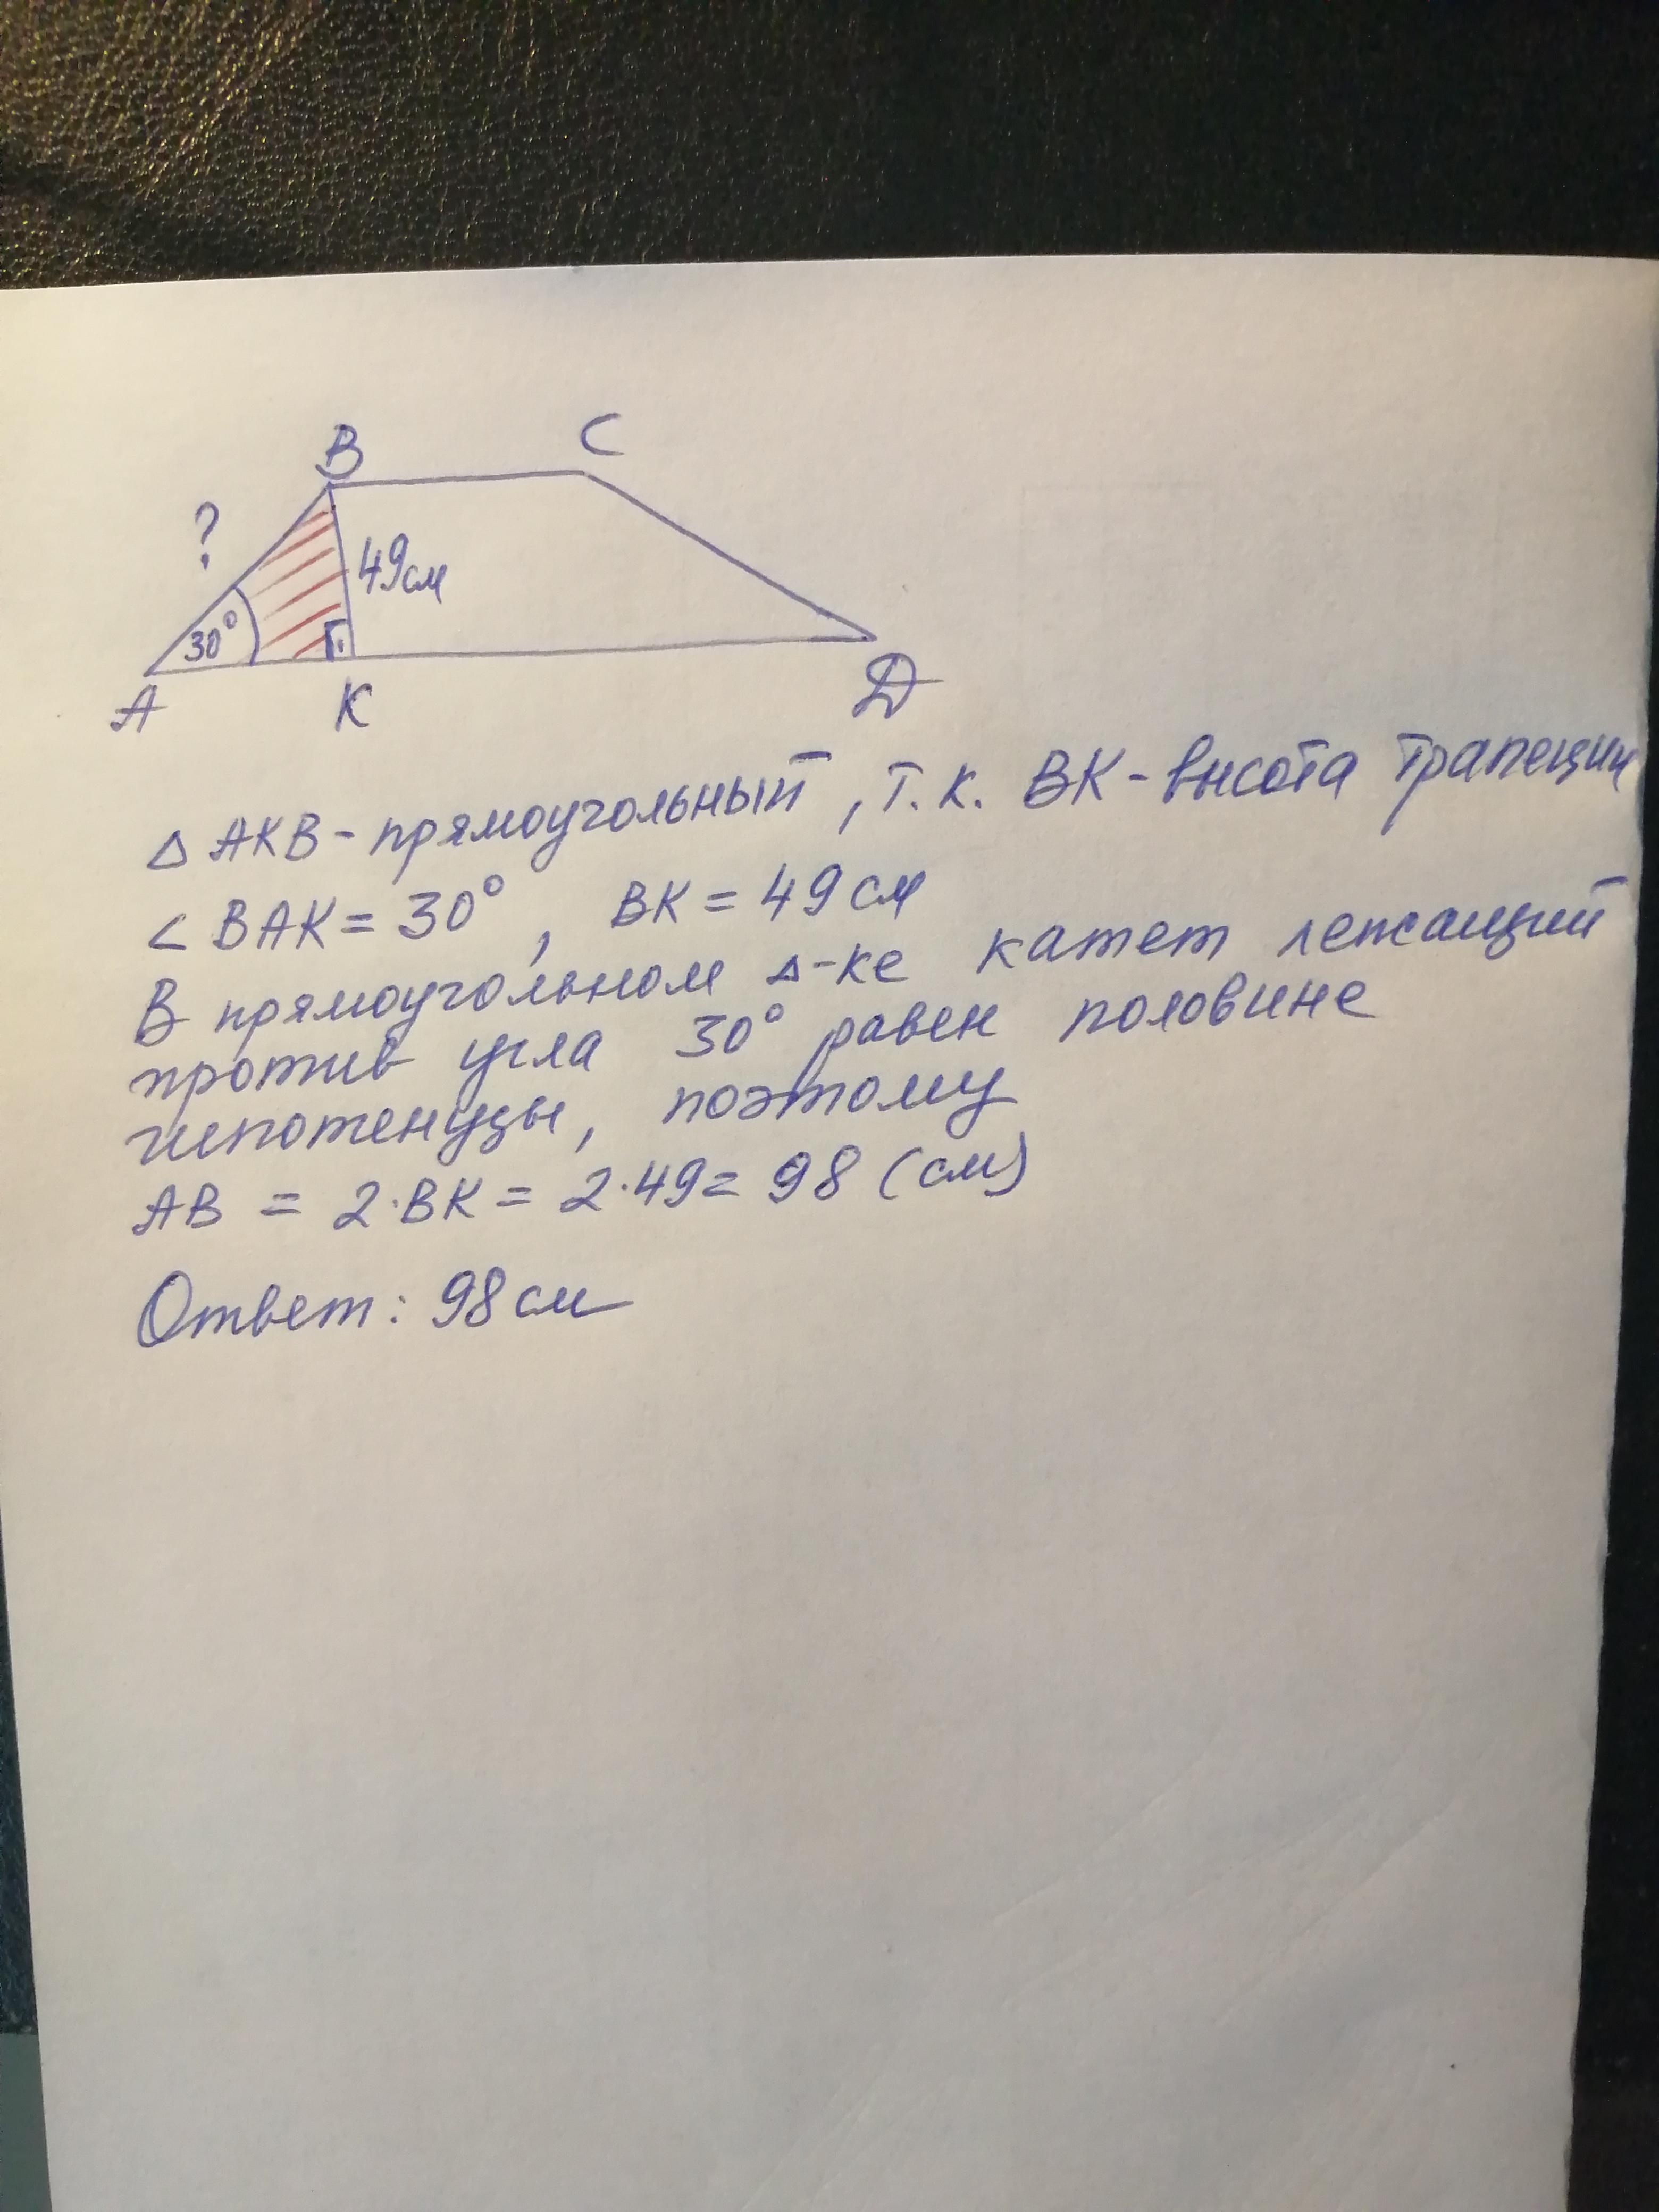 B
C
?
49см
30°
A
K
D
△ AKB - прямоугольный, т.к. BK - высота трапеции
∠ BAK = 30°, BK = 49 см
В прямоугольном △-ке катет лежащий
против угла 30° равен половине
гипотенузы, поэтому
AB = 2·BK = 2·49 = 98 (см)
Ответ: 98 см